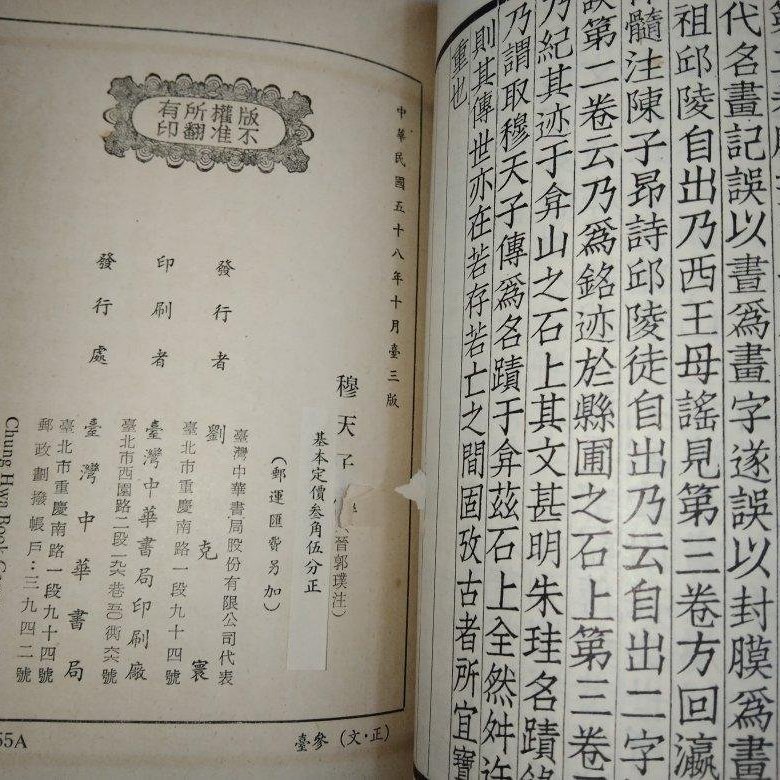 代名畫記誤以晝爲畫字遂誤以封膜爲畫
祖邱陵自出乃西王母謠見第三卷方回瀛
髓注陳子昂詩邱陵徒自出乃云自出二字
誤第二卷云乃爲銘迹於縣圃之石上第三卷
乃紀其迹于弇山之石上其文甚明朱珪名蹟
乃謂取穆天子傳爲名蹟于弇茲石上全然舛
則其傳世亦在若存若亡之間固攷古者所宜寶
重也
版權所有
不准翻印
中華民國五十八年十月臺三版
穆天子
晉郭璞注)
基本定價叁角伍分正
(郵運匯費另加)
發行者
臺灣中華書局股份有限公司代表
劉克寰
臺北市重慶南路一段九十四號
印刷者
臺灣中華書局印刷廠
臺北市西園路二段
發行處
臺灣中華書局
臺北市重慶南路一段九十四號
郵政劃撥帳戶:三九四二號
Chung Hwa Book
臺參(文·正)
55A